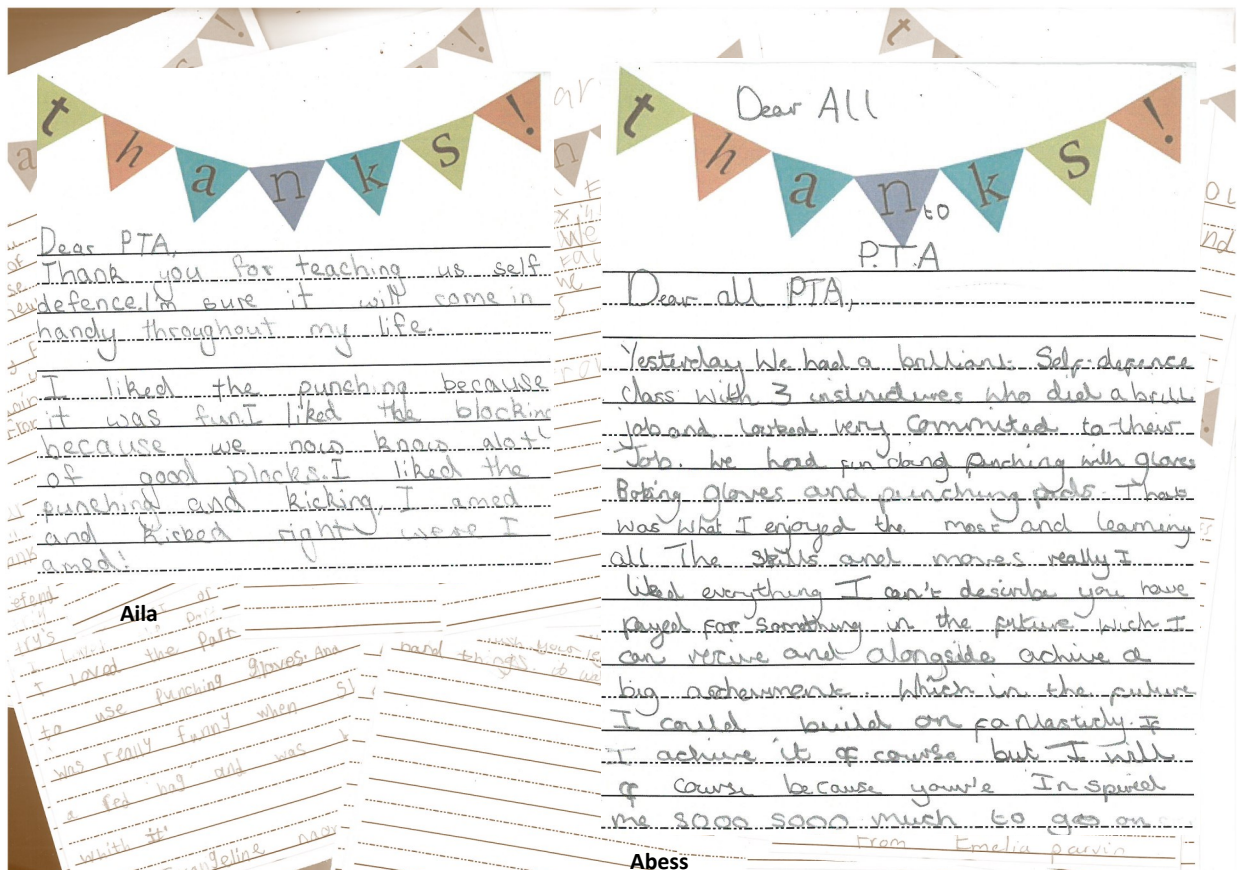 thanks!
Dear PTA,
Thank you for teaching us self
defence. I'm sure it will come in
handy throughout my life.
I liked the punching because
it was fun. I liked the blocking
because we now know alot
of good blocks. I liked the
punching and kicking, I amed
and kicked right were I
amed!
Aila
I loved the part
to use punching gloves. And
was really funny when
a red bag and was
whith it
Dear All
thanks!
to
P.T.A
Dear all PTA,
Yesterday We had a brilliant Self-defence
class with 3 instructures who did a brill
job and looked very Commited to their
Job. We had fun doing punching with gloves
Boxing gloves and punching pads. That
was what I enjoyed the most and learning
all The skills and moves really I
liked everything I can't describe you have
payed for something in the future wich I
can recive and alongside achive a
big acheivment. Which in the future
I could build on fantasticly. If
I achive it of course but I will
of course because your'e Inspired
me sooo sooo much to go on
From Emelia parvin
Abess